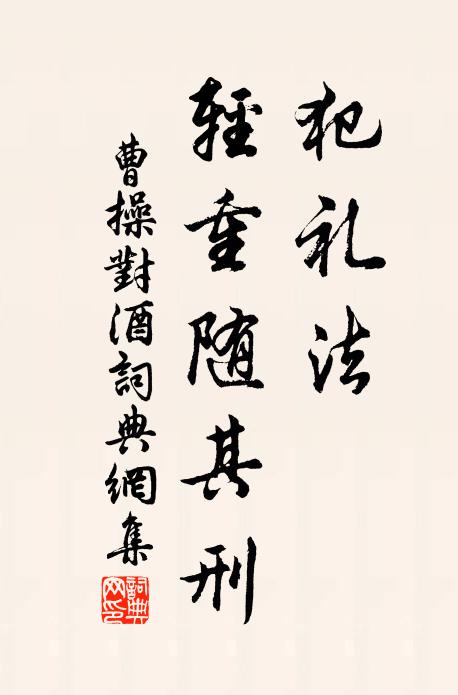 犯礼法
轻重随其刑
曹操對酒詞典網集
詞典网印